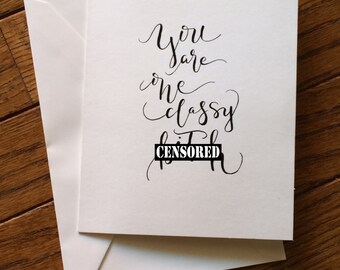 You
are
one
classy
CENSORED